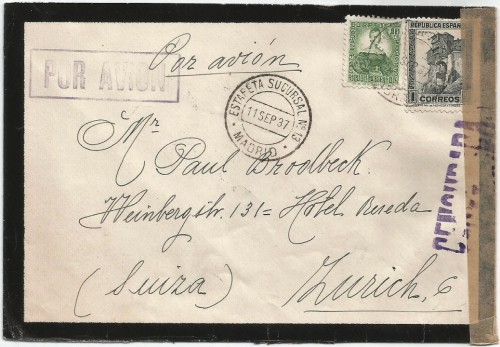 Por avión
POR AVION
ESTAFETA SUCURSAL Nº 13
11 SEP 37
MADRID
REPÚBLICA ESPAÑOLA
1
CORREOS
CENSURADA
Mr
Paul Brodbeck
Weinbergstr. 131 = Hôtel Reseda
(Suiza) Zurich, 6